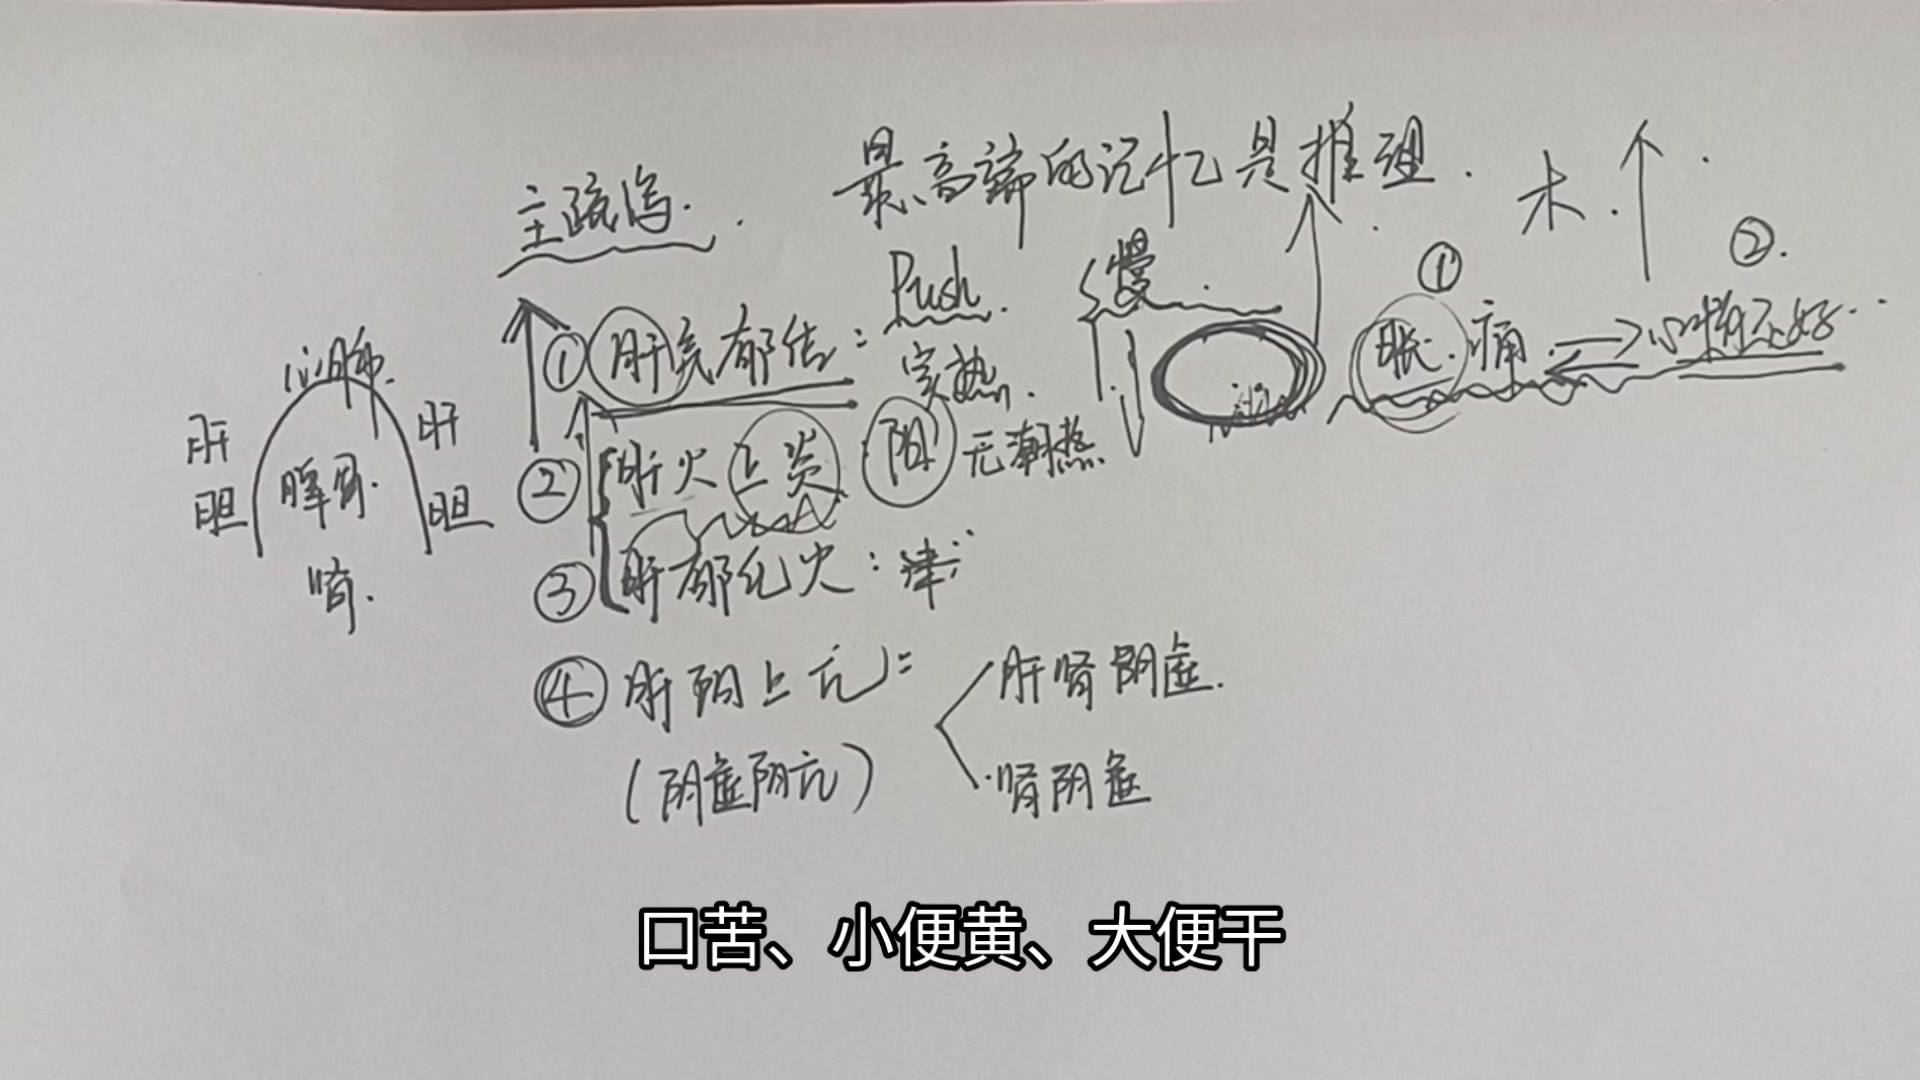 最高端的记忆是推理.
主疏泻.
木.
②.
①
慢.
Push.
①肝气郁结:
胀.痛
心情不好..
实热.
心肺.
肝
肝
②肝火上炎
阳
无潮热.
脾胃.
胆
胆
③肝郁化火:津
肾.
④肝阳上亢:
肝肾阴虚.
(阴虚阳亢)
肾阴虚
口苦、小便黄、大便干